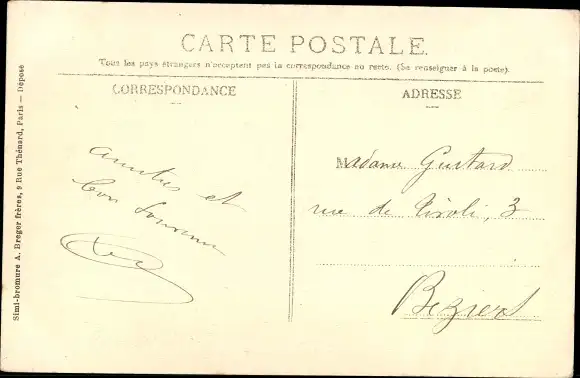 CARTE POSTALE.
Tous les pays étrangers n'acceptent pas la correspondance au recto. (Se renseigner à la poste).
CORRESPONDANCE
ADRESSE
amitiés et
bon souvenir
Madame Gustard
rue de Rivoli, 3
Beziers
Simi-bromure A. Breger frères, 9 Rue Thénard, Paris — Déposé